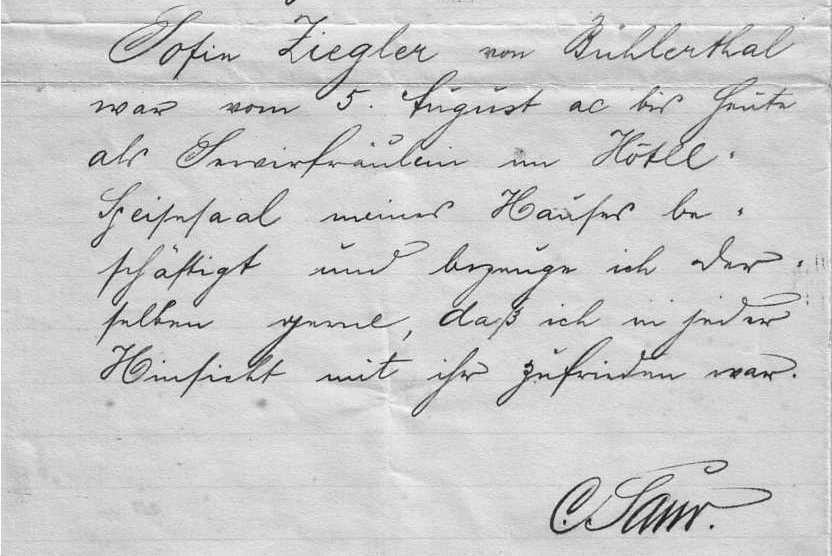 Sofie Ziegler von Bühlerthal
war vom 5. August ac bis heute
als Servirfräulein im Hôtel-
Speisesaal meines Hauses be-
schäftigt und bezeuge ich der-
selben gerne, daß ich in jeder
Hinsicht mit ihr zufrieden war.
C. Saur.